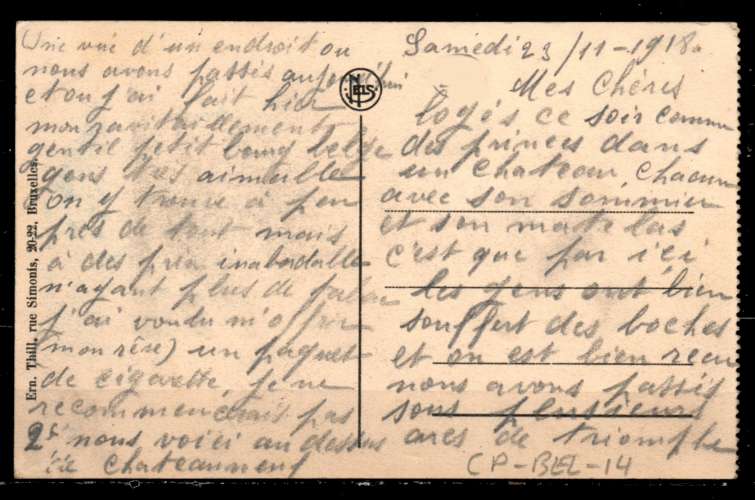 Une vue d'un endroit ou
nous avons passés aujourd'hui
et ou j'ai fait hier
mon ravitaillement
gentil petit bourg belge
gens très aimables
on y trouve à peu
près de tout mais
à des prix inabordable
n'ayant plus de
j'ai voulu m'offrir
(mon rêve) un paquet
de cigarette, je ne
recommencerais pas
2 nous voici au dessus
de Chateauneuf
Ern. Thill, rue Simonis, 20-22, Bruxelles.
NELS
Samedi 23/11-1918.
Mes Chéries
logés ce soir comme
des princes dans
un chateau, chacun
avec son sommier
et son matelas
c'est que par ici
les gens ont bien
souffert des boches
et on est bien recu
nous avons passés
sous plusieurs
arcs de triomphe
CP-BEL-14